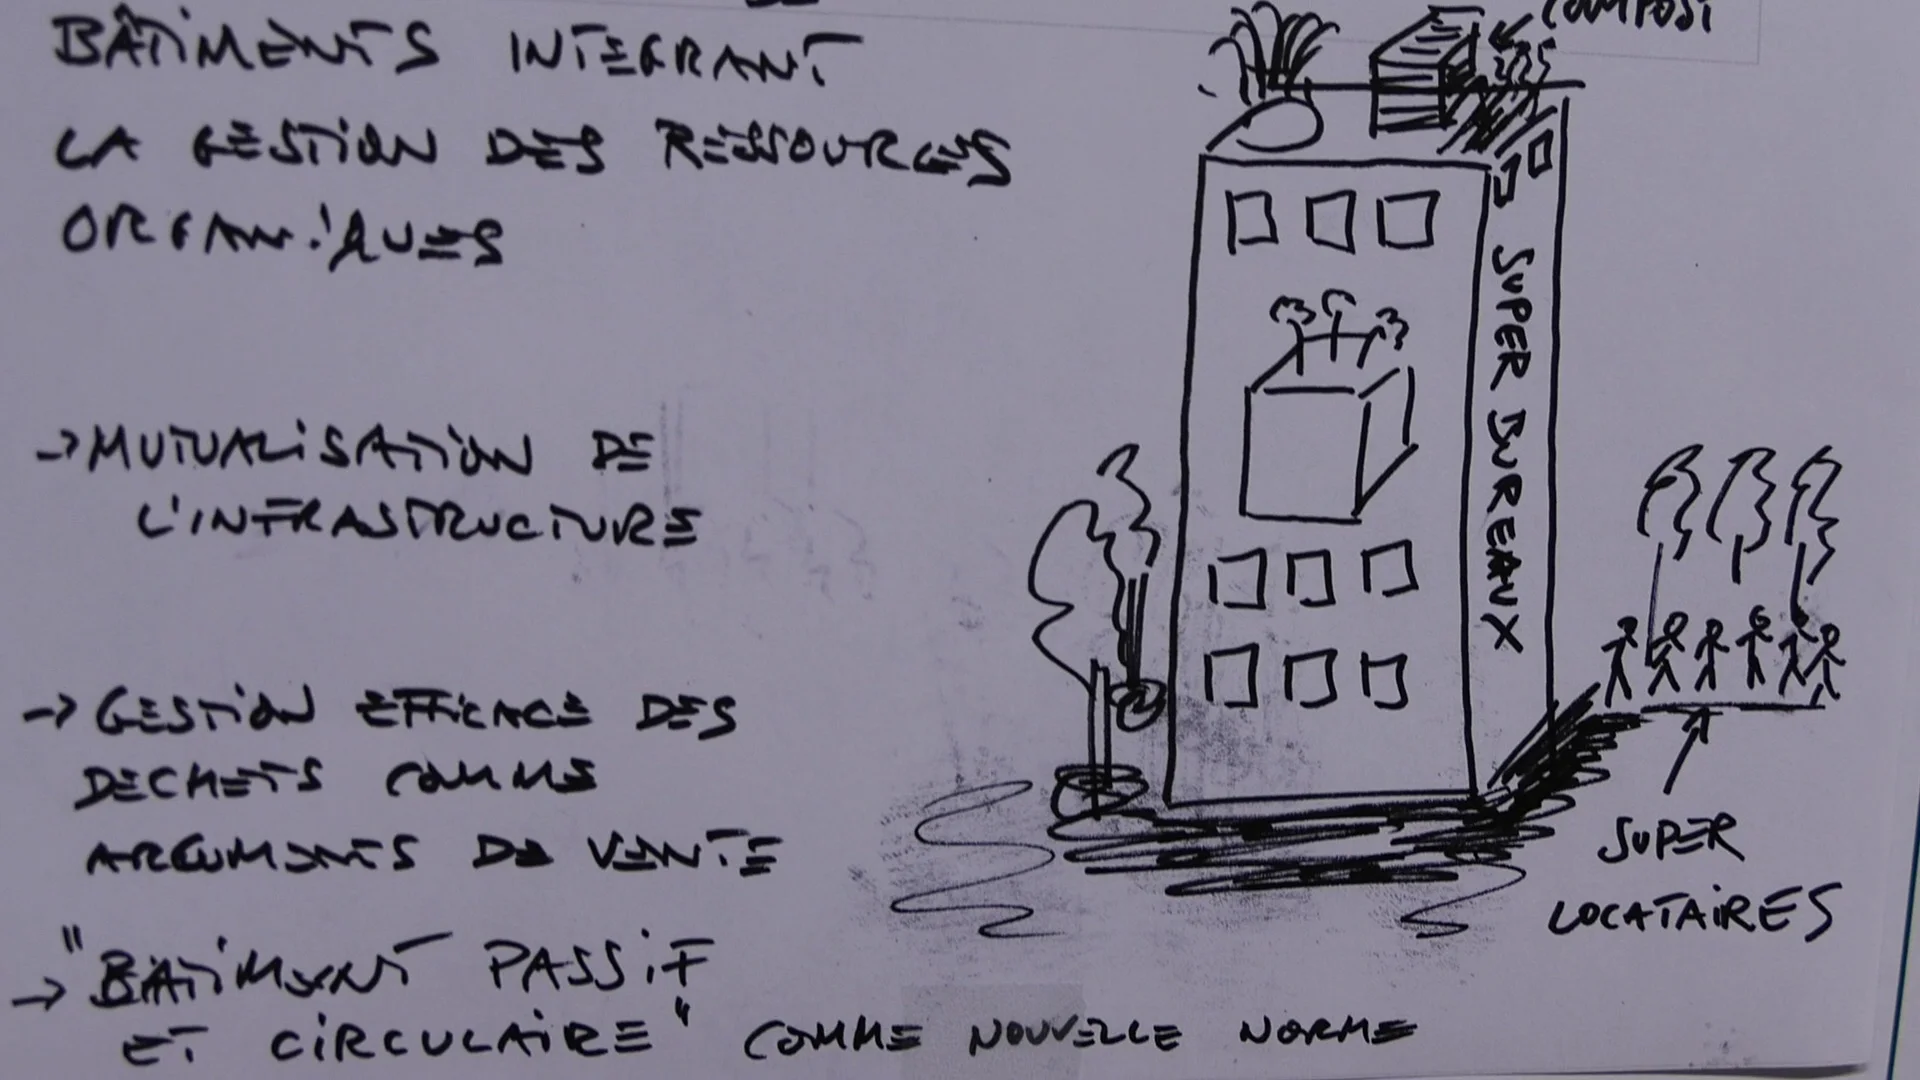 BÂTIMENTS INTEGRANT
LA GESTION DES RESSOURCES
ORGANIQUES
→ MUTUALISATION DE
L'INFRASTRUCTURE
→ GESTION EFFICACE DES
DECHETS COMME
ARGUMENTS DE VENTE
→ "BÂTIMENT PASSIF
ET CIRCULAIRE" COMME NOUVELLE NORME
COMPOST
SUPER BUREAUX
SUPER
LOCATAIRES